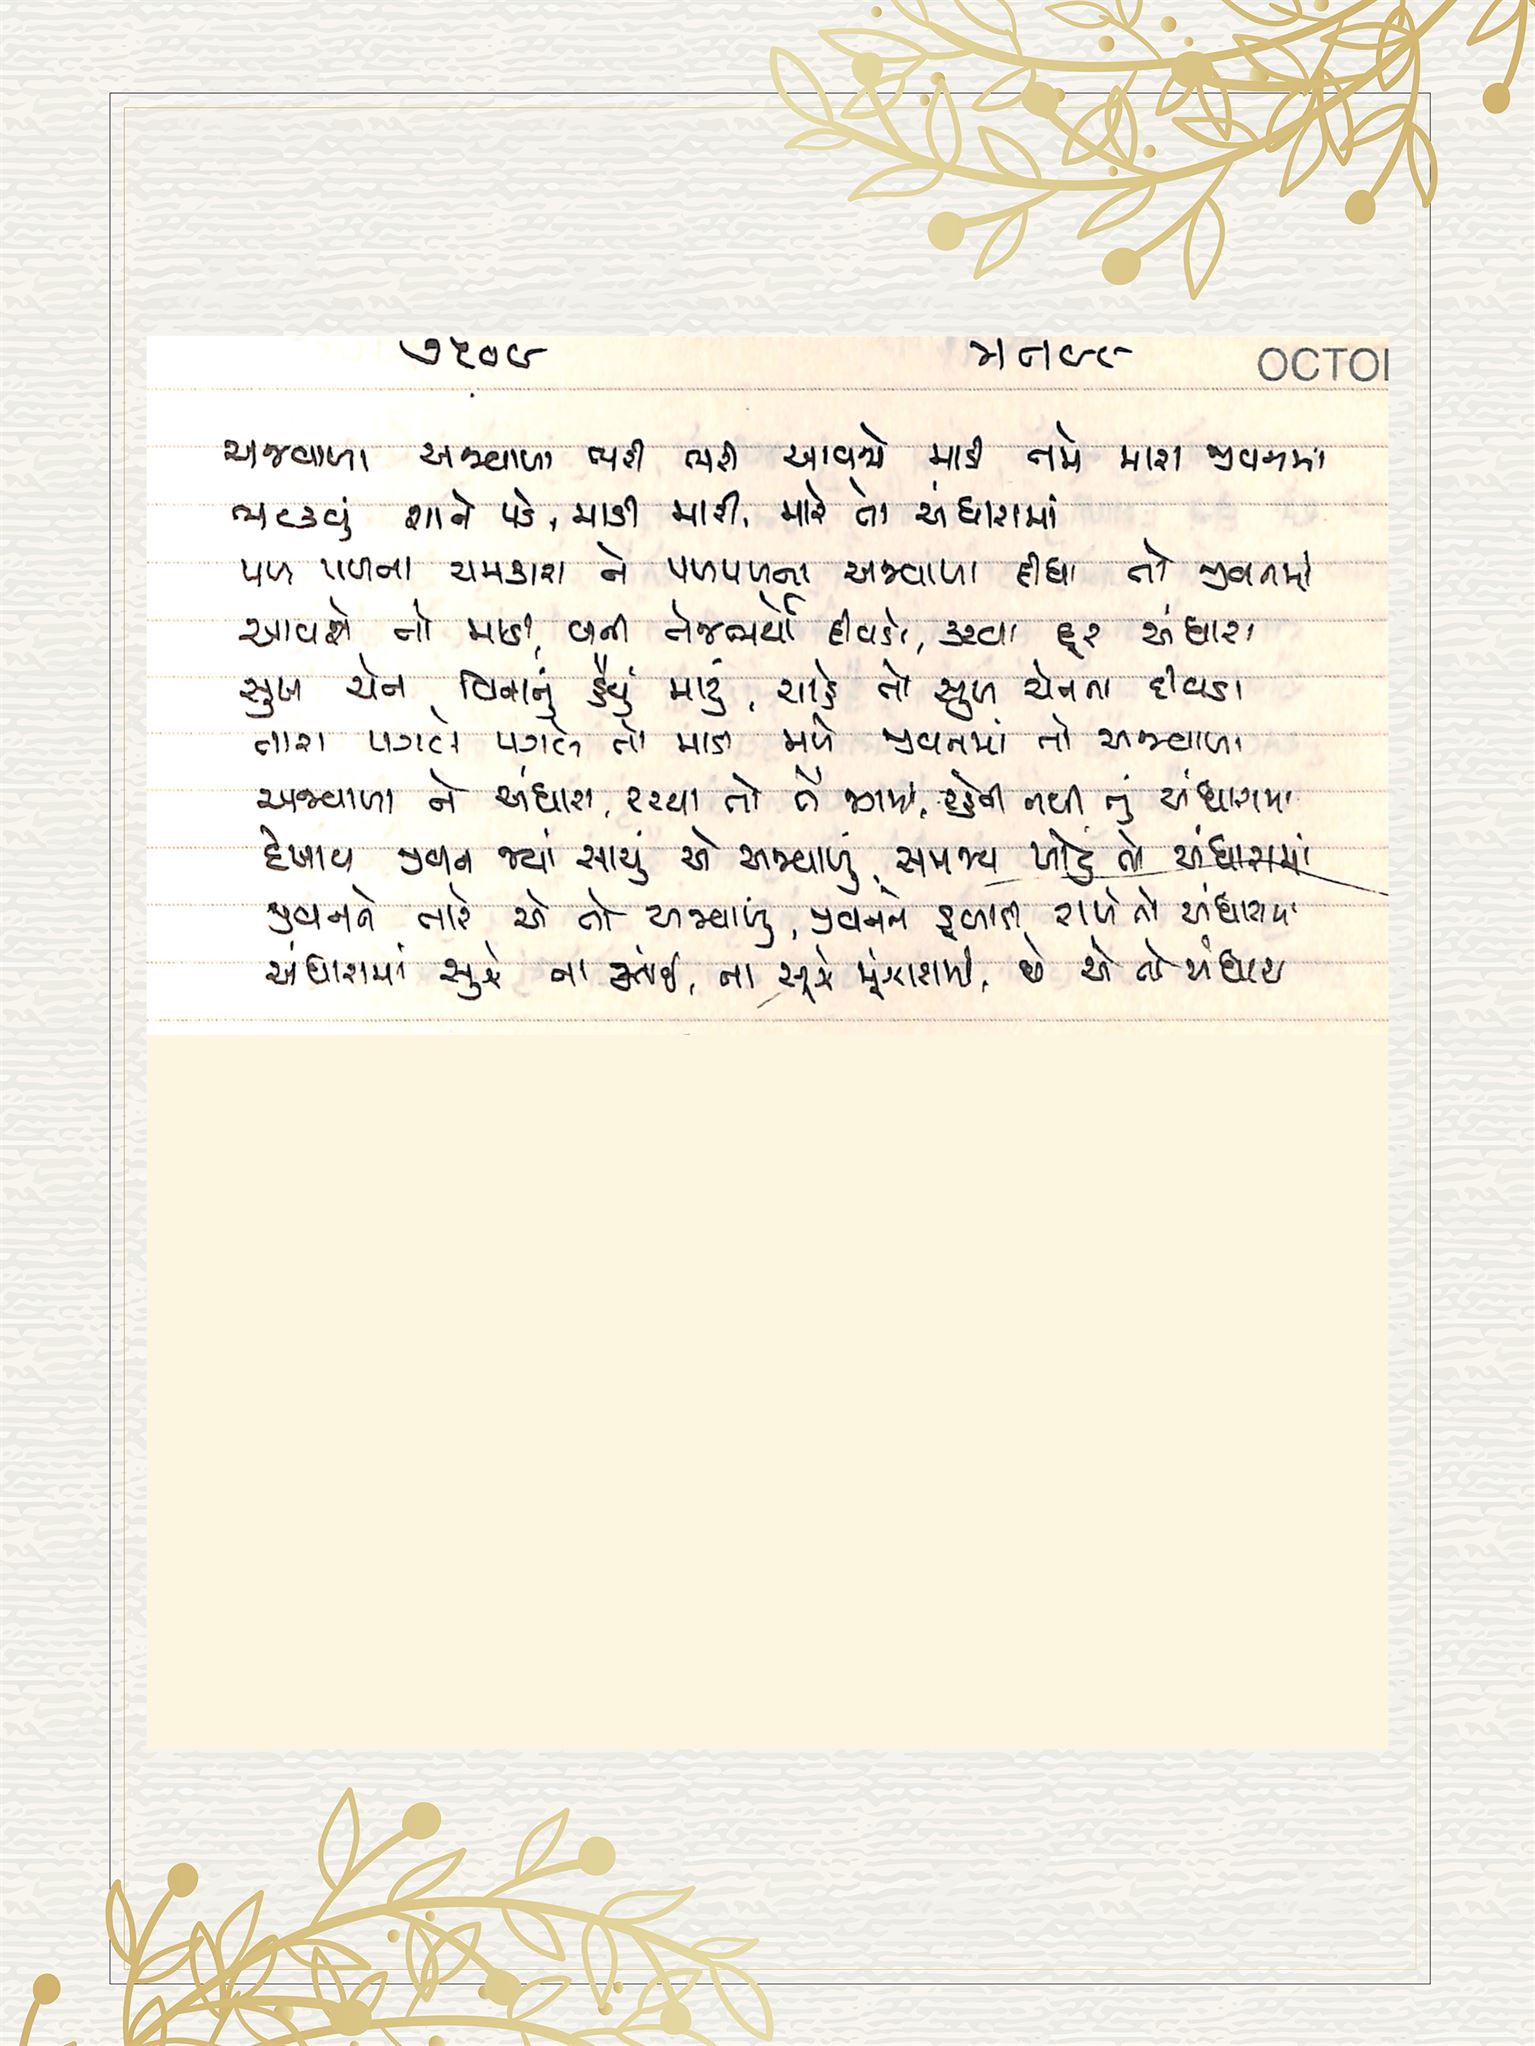 અજવાળા અજવાળા ભરી ભરી આવજો માડી તમે મારા જીવનમાં
ભટકવું શાને પડે, માડી મારી, મારે તો અંધારામાં
પળ પળના ચમકારા ને પળપળના અજવાળા દીધા તો જીવનમાં
આવશો તો માડી, બની તેજભર્યો દીવડો, કરવા દૂર અંધારા
સુખ ચેન વિનાનું હૈયું મારું, ચાહે તો સુખ ચેનના દીવડા
તારા પગલે પગલે તો માડી મળે જીવનમાં તો અજવાળા
અજવાળા ને અંધારા, રચ્યા તો તેં જગમાં, રહેતી નથી તું અંધારામાં
દેખાય જીવન જ્યાં સાચું એ અજવાળું, સમજાય ખોટું તો અંધારામાં
જીવનને તારે એ તો અજવાળું, જીવનને ડુબાડી રાખે તો અંધારામાં
અંધારામાં સુઝે ના કાંઈ, ના સૂઝે મૂંઝારામાં, છે એ તો અંધારા